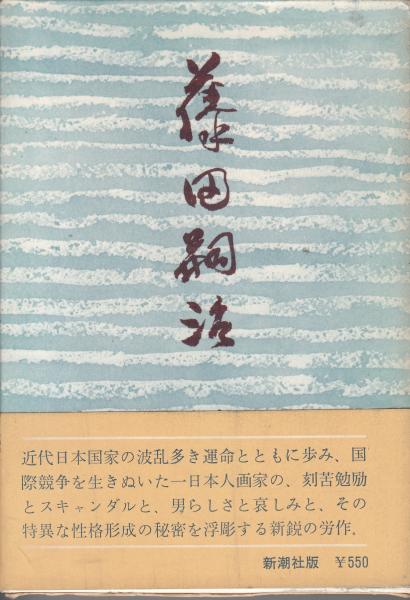 藤田嗣治
近代日本国家の波乱多き運命とともに歩み、国
際競争を生きぬいた一日本人画家の、刻苦勉励
とスキャンダルと、男らしさと哀しみと、その
特異な性格形成の秘密を浮彫する新鋭の労作.
新潮社版 ¥550